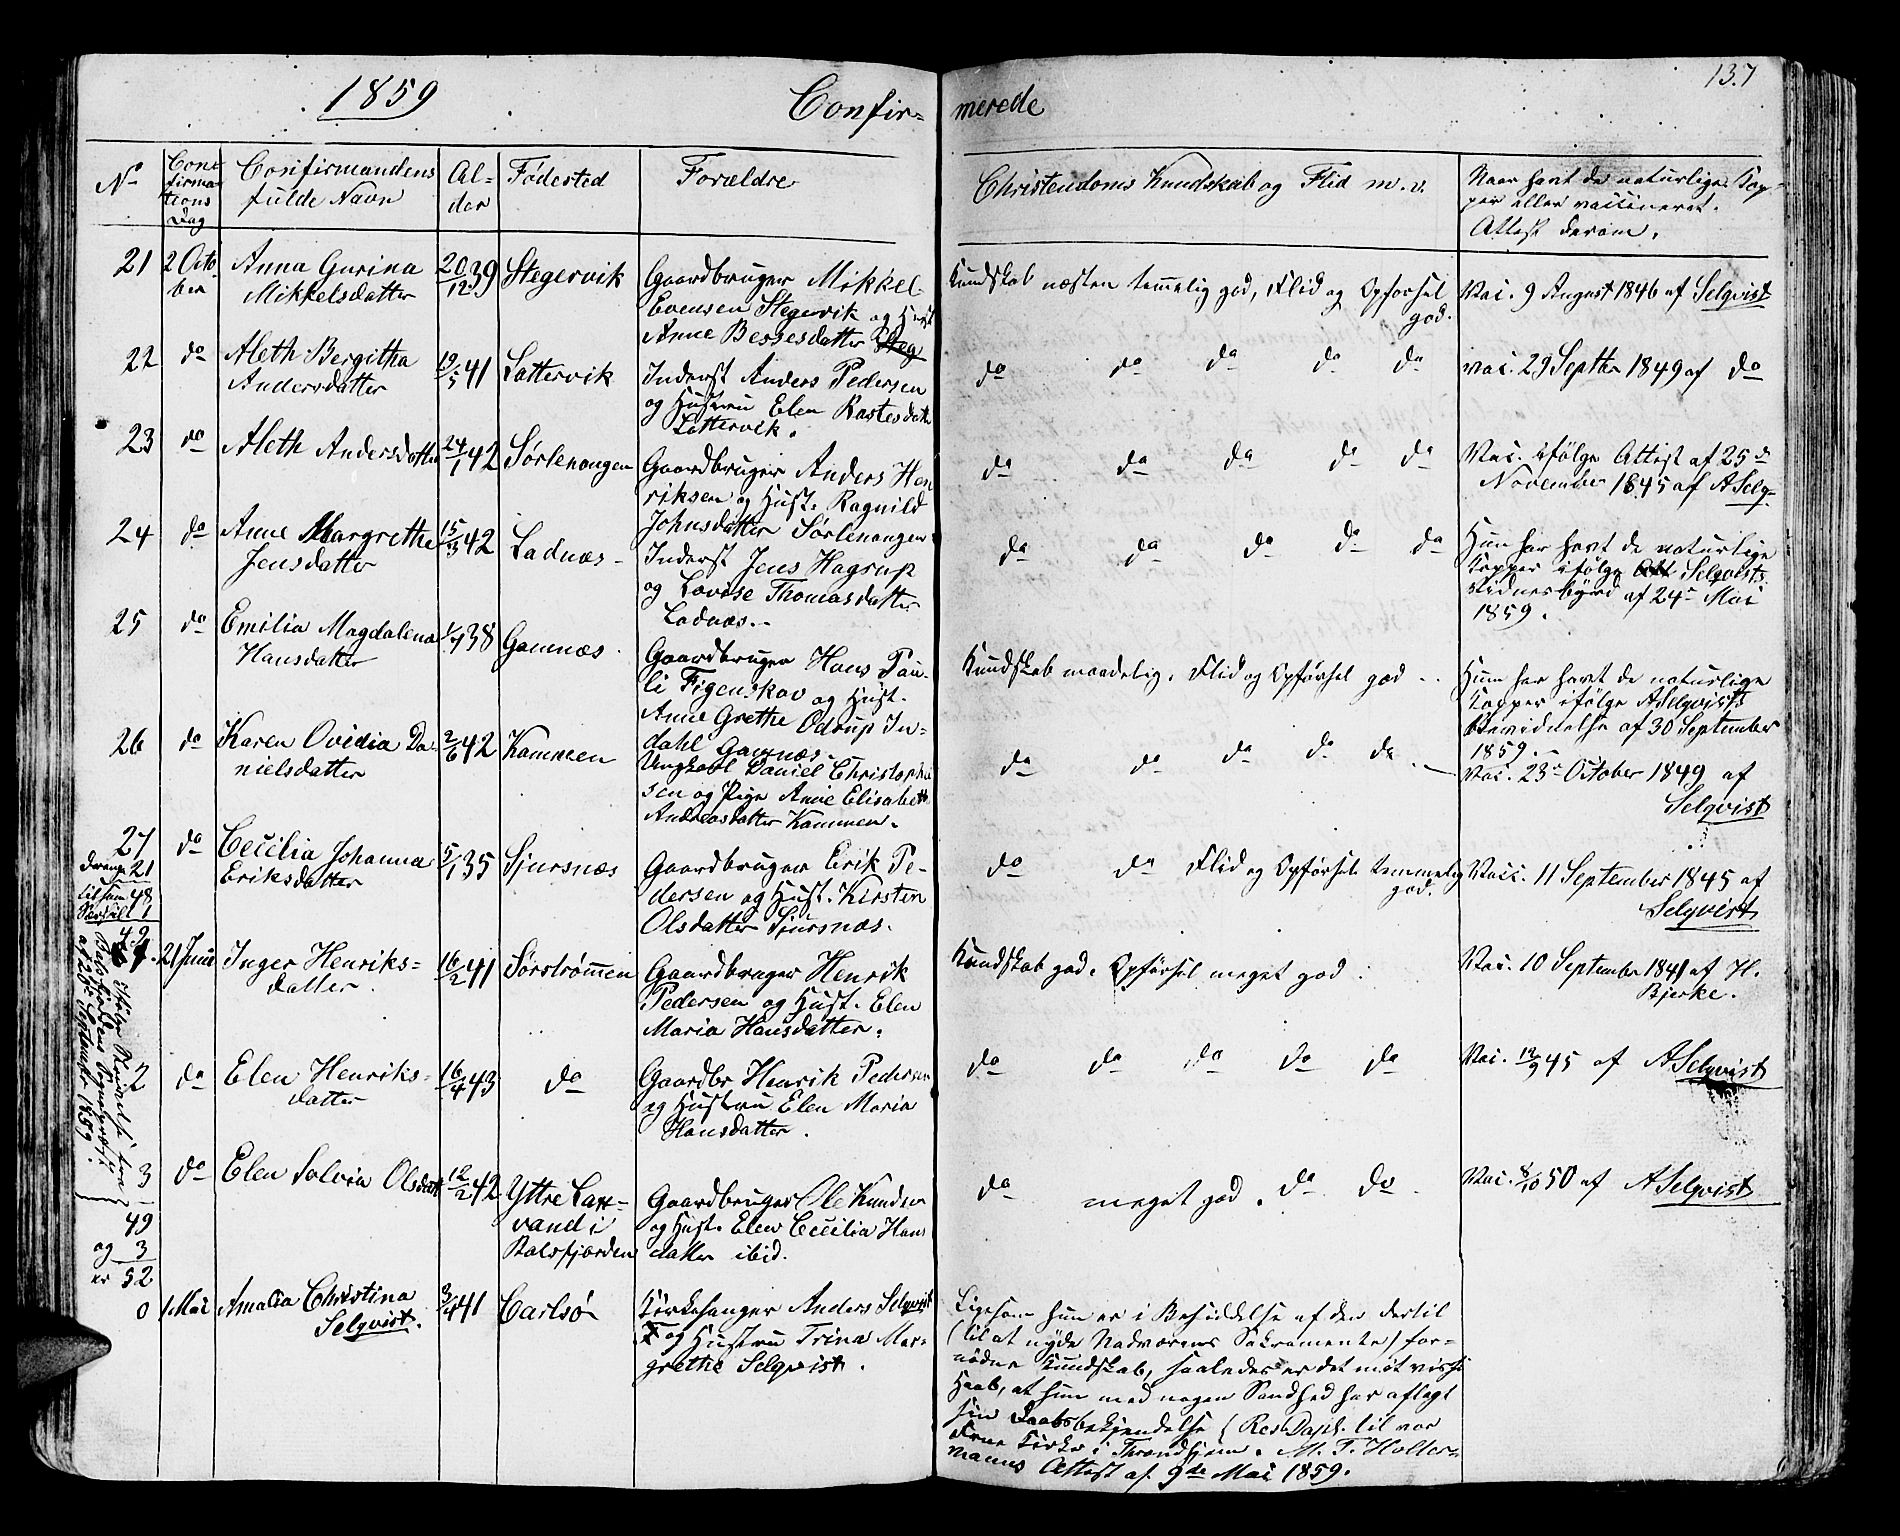 1859 Confir= merede 137
N Con= firma= tions Dag
Confirmandens fulde Navn
Al= der
Fødested
Forældre
Christendoms Kundskab og Flid m. v.
Naar havt de naturlige Kop= per eller vaccineret. Attest derom.
21 2 Octo ber
Anna Gurina
Mikkelsdatter
20/12 39
Stegervik
Gaardbruger Mikkel
Evensen Stegervik og Hust
Anne Bessesdatter Steg
Kundskab næsten temmelig god, Flid og Opførsel
god.
Vac. 9 August 1846 af Selqvist
22 do
Aleth Bergitha
Andersdatter
19/5 41
Lattervik
Inderst Anders Pedersen
og Hustru Elen Rastesdatt
Lattervik.
do do do do do
vac. 29 Septbr 1849 af do
23 do
Aleth Andersdatter
24/1 42
Sørlenangen
Gaardbruger Anders Hen
riksen og Hust. Ragnild
Johnsdatter Sørlenangen
do do do do do
Vac. ifølge Attest af 25de
November 1845 af A Selq.
24 do
Anne Margrethe
Jensdatter
15/3 42
Ladnæs
Inderst Jens Hagrup
og Lovise Thomasdatter
Ladnæs.
do do do do do
Hun har havt de naturlige
Kopper ifølge Att Selqvists
Vidnesbyrd af 24de Mai
1859.
25 do
Emilia Magdalena
Hansdatter
38
Gamnæs
Gaardbruger Hans Pau=
li Figenskov og Hust.
Anne Grethe Odrup In=
dahl Gamnæs.
Kundskab maadelig. Flid og Opførsel god
Hun har havt de naturlige
Kopper ifølge A Selqvists
Bevidnelse af 30 September
1859.
26 do
Karen Ovidia Da=
nielsdatter
2/6 42
Kammen
Ungkarl Daniel Christoph
sen og Pige Anne Elisabeth
Andreasdatter Kammen.
do do do do do
Vac. 23de October 1849 af
Selqvist
27 do
21
tilsam 48
1
Cecilia Johanna
Eriksdatter
5/1 35
Sjursnæs
Gaardbruger Erik Pe=
dersen og Hust. Kirsten
Olsdatter Sjursnæs.
do do Flid og Opførsel temmelig
god.
Vacc. 11 September 1845 af
Selqvist
1. 21 Juni
Inger Henriks=
datter
16/2 41
Sørstrømen
Gaardbruger Henrik
Pedersen og Hust. Elen
Maria Hansdatter.
Kundskab god. Opførsel meget god.
Vac. 10 September 1841 af H.
Bjerke.
2 do
Elen Henriks=
datter
16/4 43
do
Gaardbr Henrik Pedersen
og Hustru Elen Maria
Hansdatter.
do do do do do
Vac. 12/9 45 af A Selqvist
3 do
Elen Solvia Olsdatt
12/2 42
Yttre
vand i
Balsfjorden
Gaardbruger Ole Knudsen
og Hust. Elen Cecilia Hans
datter ibid.
do meget god. do do
Vac. 8/10 50 af A Selqvist
49
og 3
er 52
0 1 Mai
Amalia Christina
Selqvist.
3/4 41
Carlsø
Kirkesanger Anders Selqvist
og Hustru Trina Mar=
grethe Selqvist.
Ligesom hun er i Besiddelse af den dertil
(til at nyde Nadverens Sakramente) for=
nødne Kundskab, saaledes er det mit visse
Haab, at hun med nogen Sandhed har aflagt
sin Daabsbekjendelse (ResCapl. til vor
Frue Kirke i Throndhjem. M. T. Holter=
manns Attest af 9de Mai 1859.
Ifølge Skrivelse fra
Balsfjordens Sognepræst
af 26de September 1859.